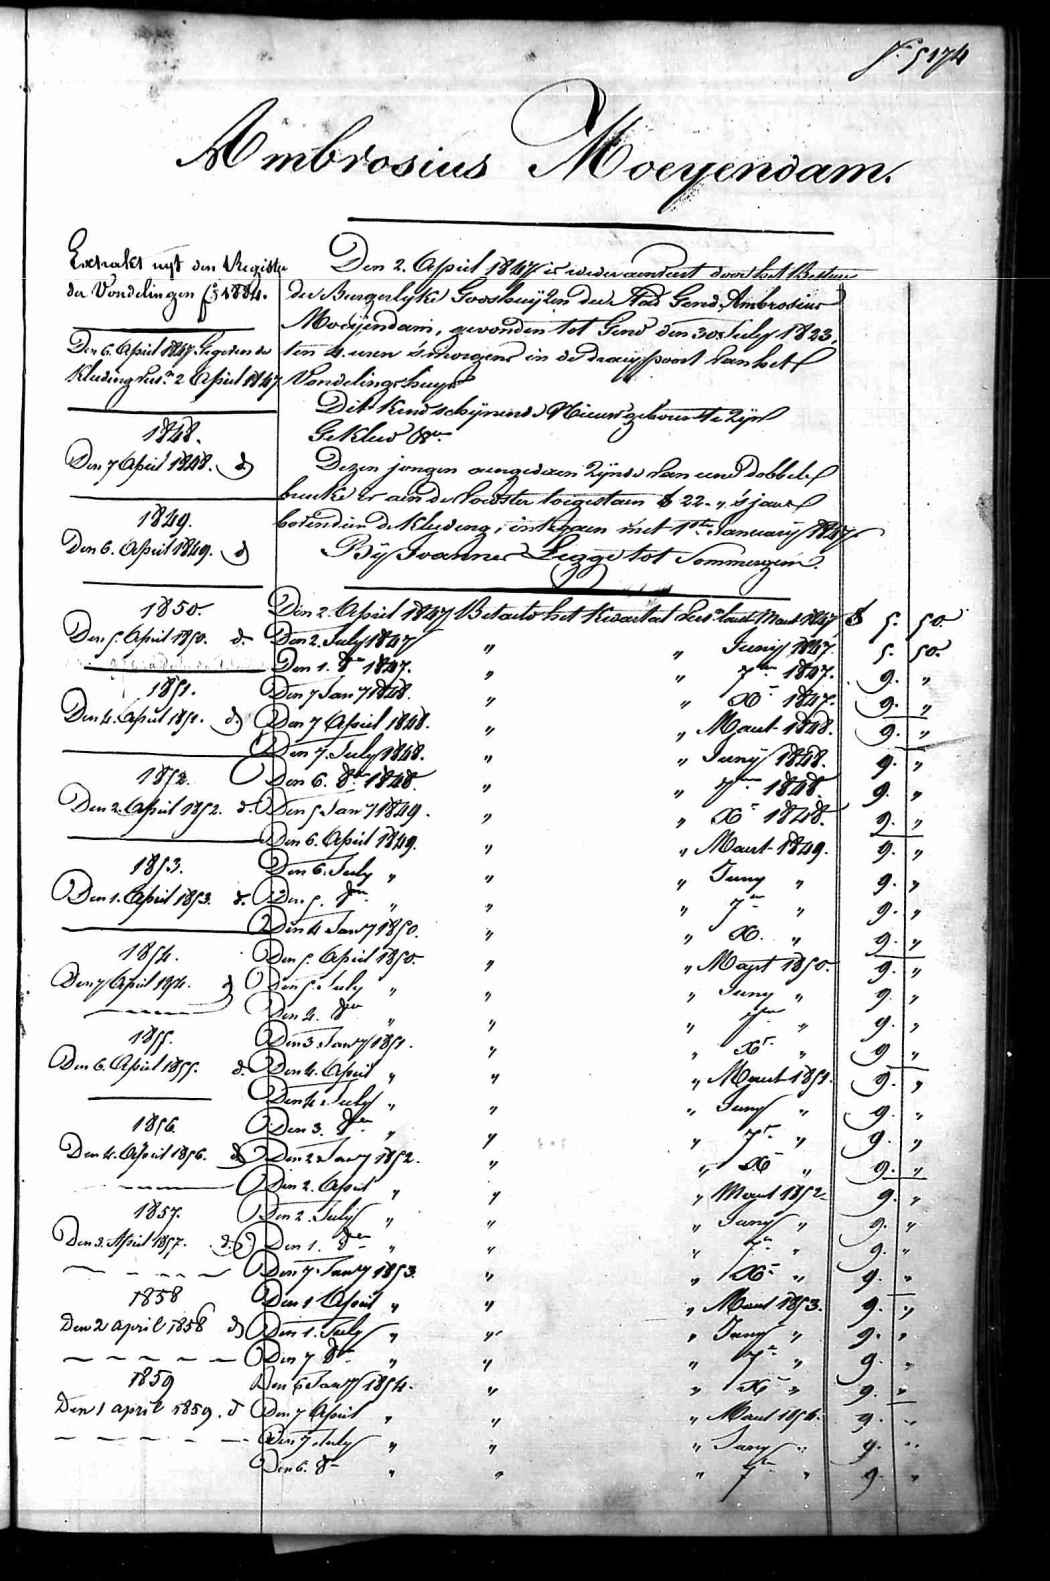 Ambrosius Moeyendam.
Extrakt uyt den Register
der Vondelingen f° 1884.
Den 6. April 1847 Gegeven de
Kleeding 2 April 1847
1848.
Den 7 April 1848. d°
1849.
Den 6. April 1849. d°
1850.
Den 5. April 1850. d°
1851.
Den 4. April 1851. d°
1852.
Den 2. April 1852. d°
1853.
Den 1. April 1853. d°
1854.
Den 7 April 1854. d°
1855.
Den 6. April 1855. d°
1856
Den 4. April 1856. d°
1857.
Den 3. April 1857. d°
1858
Den 2 april 1858 d°
1859
Den 1 april 1859. d°
Den 2. April 1847 is wederom door het Bestuur
der Burgerlyke Godshuyzen der Stad Gend, Ambrosius
Moeyendam, gevonden tot Gend den 30 July 1823,
ten 4 uren s'morgens in de draeypoort van het
Vondelingshuys
Dit kind schynende Nieuw geboren te zyn
Gekleed
Dezen jongen aengedaen zynde van eene dobbele
breuke is aen de toegestaen 22 " 's jaers
boven de kleeding, integaen met 1en January 1847.
By Joannes tot Sommergem.
Den 2. April 1847 Betaeld het Kwartael Maert 1847 5. 50.
Den 2. July 1847 " " Juny 1847. 5. 50.
Den 1. 8er 1847. " " 7er 1847. 9. "
Den 7 Jany 1848. " " Xr 1847. 9. "
Den 7 April 1848. " " Maert 1848. 9. "
Den 7. July 1848. " " Juny 1848. 9. "
Den 6. 8er 1848. " " 7er 1848. 9. "
Den 5 Jany 1849. " " Xr 1848. 9. "
Den 6. April 1849. " " Maert 1849. 9. "
Den 6. July " " " Juny " 9. "
Den 5. 8er " " " 7er " 9. "
Den 4 Jany 1850. " " Xr " 9. "
Den 5. April 1850. " " Maert 1850. 9. "
Den 5. July " " " Juny " 9. "
Den 4. 8er " " " 7er " 9. "
Den 3. Jany 1851. " " Xr " 9. "
Den 4. April " " " Maert 1851. 9. "
Den 4. July " " " Juny " 9. "
Den 3. 8er " " " 7er " 9. "
Den 2 Jany 1852. " " Xr " 9. "
Den 2. April " " " Maert 1852. 9. "
Den 2. July " " " Juny " 9. "
Den 1. 8er " " " 7er " 9. "
Den 7 Jany 1853. " " Xr " 9. "
Den 1 April " " " Maert 1853. 9. "
Den 1. July " " " Juny " 9. "
Den 7 8er " " " 7er " 9. "
Den 6 Jany 1854. " " Xr " 9. "
Den 7 April " " " Maert 1854. 9. "
Den 7 July " " " Juny " 9. "
Den 6. 8er " " " 7er " 9. "